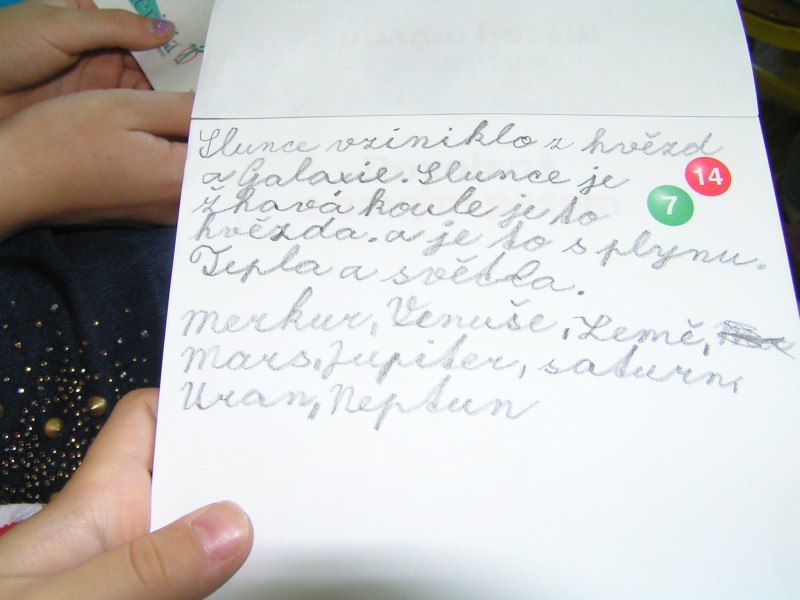 Slunce vziniklo z hvězd
a Galaxie. Slunce je
14
žhavá koule je to
7
hvězda. a je to s plynu.
Tepla a světla.
Merkur, Venuše, Země,
Mars, Jupiter, saturn,
Uran, Neptun